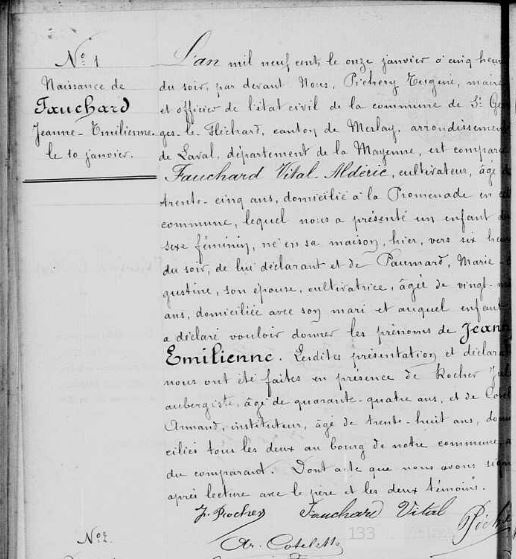 N° 1
Naissance de
Fauchard
Jeanne-Emilienne
le 10 janvier.
L'an mil neuf cent, le onze janvier à cinq heu
du soir, par devant Nous, Pichery Eugène, maire
et officier de l'état civil de la commune de St Geo
ges-le-Fléchard, canton de Meslay, arrondissement
de Laval, département de la Mayenne, est comparu
Fauchard Vital Aldéric, cultivateur, âgé de
trente-cinq ans, domicilié à la Promenade en ce
commune, lequel nous a présenté un enfant du
sexe féminin, né en sa maison, hier, vers six heu
du soir, de lui déclarant et de Paumard, Marie
gustine, son épouse, cultivatrice, âgée de vingt-
ans, domiciliée avec son mari et auquel enfant
a déclaré vouloir donner les prénoms de Jeann
Emilienne. Lesdites présentation et déclarat
nous ont été faites en présence de Rocher Jul
aubergiste, âgé de quarante-quatre ans, et de Cotel
Armand, instituteur, âgé de trente-huit ans, dom
ciliés tous les deux au bourg de notre commune
du comparant. Dont acte que nous avons signé
après lecture avec le père et les deux témoins.
J. Rocher Fauchard Vital Pich
Ar. Cotel
133
N° 2